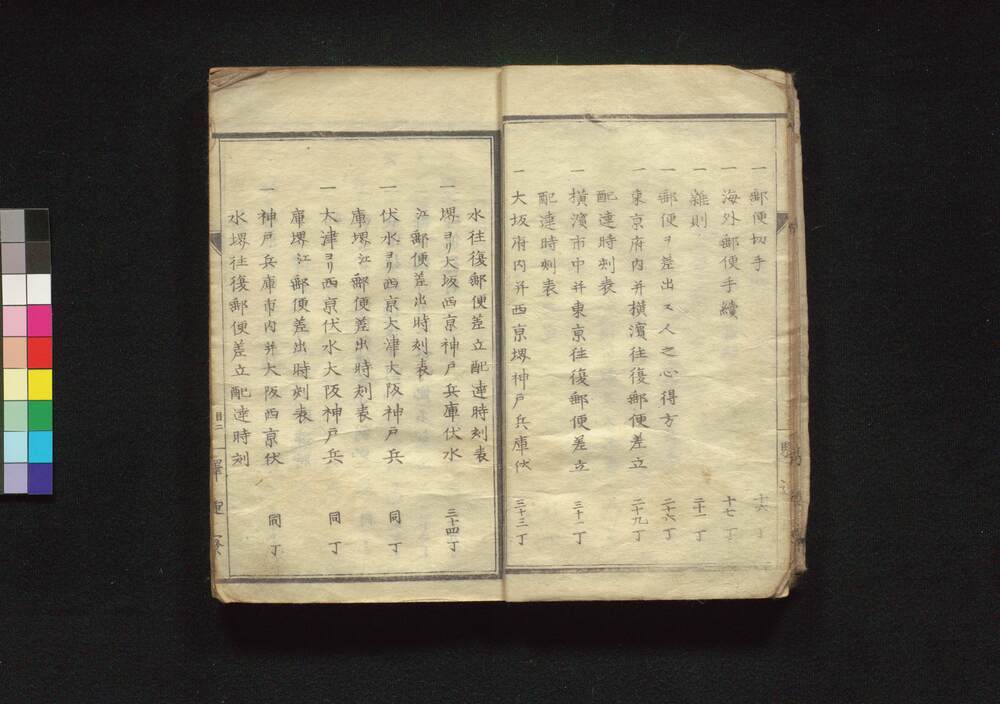 一 郵便切手 十六丁
一 海外郵便手續 十七丁
一 雜則 二十一丁
一 郵便ヲ差出ス人之心得方 二十六丁
一 東京府内并横濱往復郵便差立 二十九丁
配達時刻表
一 横濱市中并東京往復郵便差立 三十一丁
配達時刻表
一 大坂府内并西京堺神戸兵庫伏 三十三丁
水往復郵便差立配達時刻表
一 堺ヨリ大坂西京神戸兵庫伏水 三十四丁
江郵便差出時刻表
一 伏水ヨリ西京大津大阪神戸兵 同丁
庫堺江郵便差出時刻表
一 大津ヨリ西京伏水大阪神戸兵 同丁
庫堺江郵便差出時刻表
一 神戸兵庫市内并大阪西京伏 同丁
水堺往復郵便差立配達時刻
目二 驛逓寮